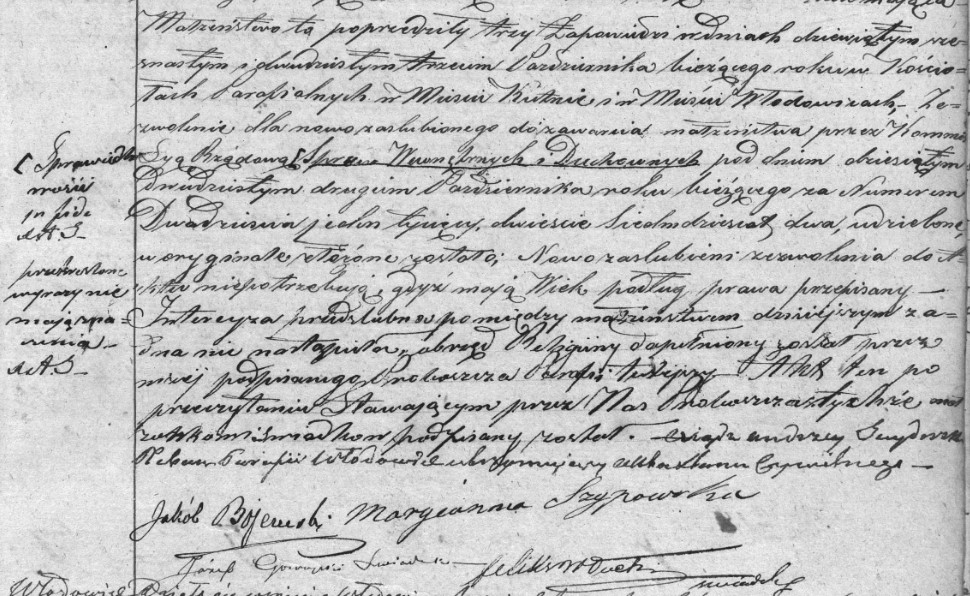 Małżeństwo to poprzedziły trzy Zapowiedzi w dniach dziewiątym sze-
snastym i dwudziestym trzecim Października bieżącego roku w Kościo-
łach Parafialnych w Mieście Kutnie i w Mieście Włodowicach – Ze-
zwolenie dla nowozaslubionego do zawarcia małżeństwa przez Kommis-
syą Rządową [Spraw Wewnętrznych i Duchownych pod dniem
Dwudziestym drugim Października roku bieżącego za Numerem
Dwadzieścia jeden tysięcy, dwieście siedmdziesiąt dwa, udzielone
w oryginale złożone zostało; Nowozaslubieni zezwolenia do A-
ktu niepotrzebują, gdyż mają Wiek podług prawa przepisany –
Intercyza przedślubna pomiędzy małżeństwem dzisiejszym ża-
dna nie nastąpiła, obrzęd Religijny dopełniony został przez
niżej podpisanego Proboszcza Parafii tutejszy – Akt ten po
przeczytaniu Stawającym przez Nas Proboszcza tychże mał-
zonkom świadkow podpisany został. – Xiądz Andrzej
Pleban Parafii Włodowice utrzymujący Akta Stanu Cywilnego –
[Sprawiedli-
wości
in fide
A S
przekreślone
wyrazy nie
mają zna-
czenia –
A S
Jakób Bojerski Maryianna Szypowska
Józef Świadek Feliks Świadek
Włodowice